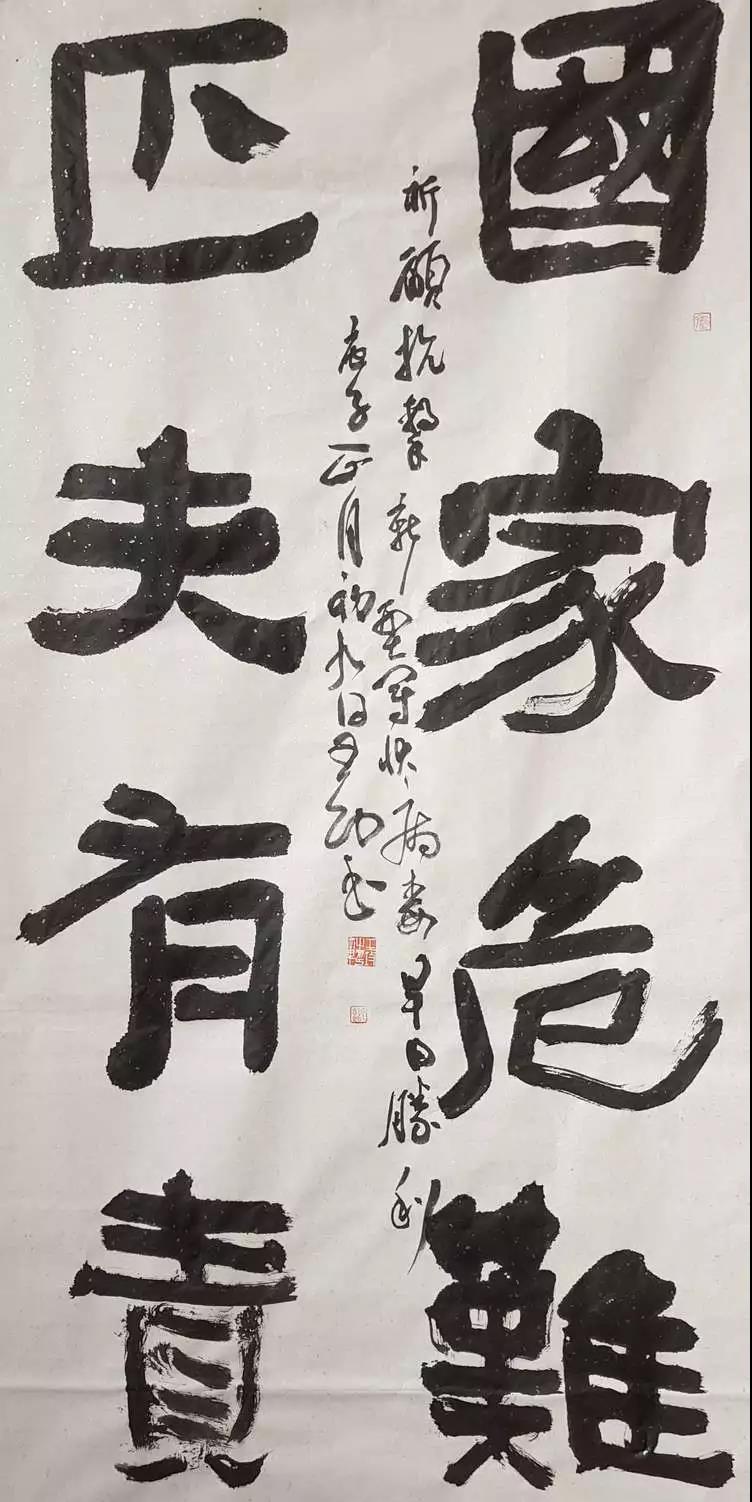 國家危難
祈願抗擊新型冠状病毒早日勝利
庚子正月初九日
匹夫有責